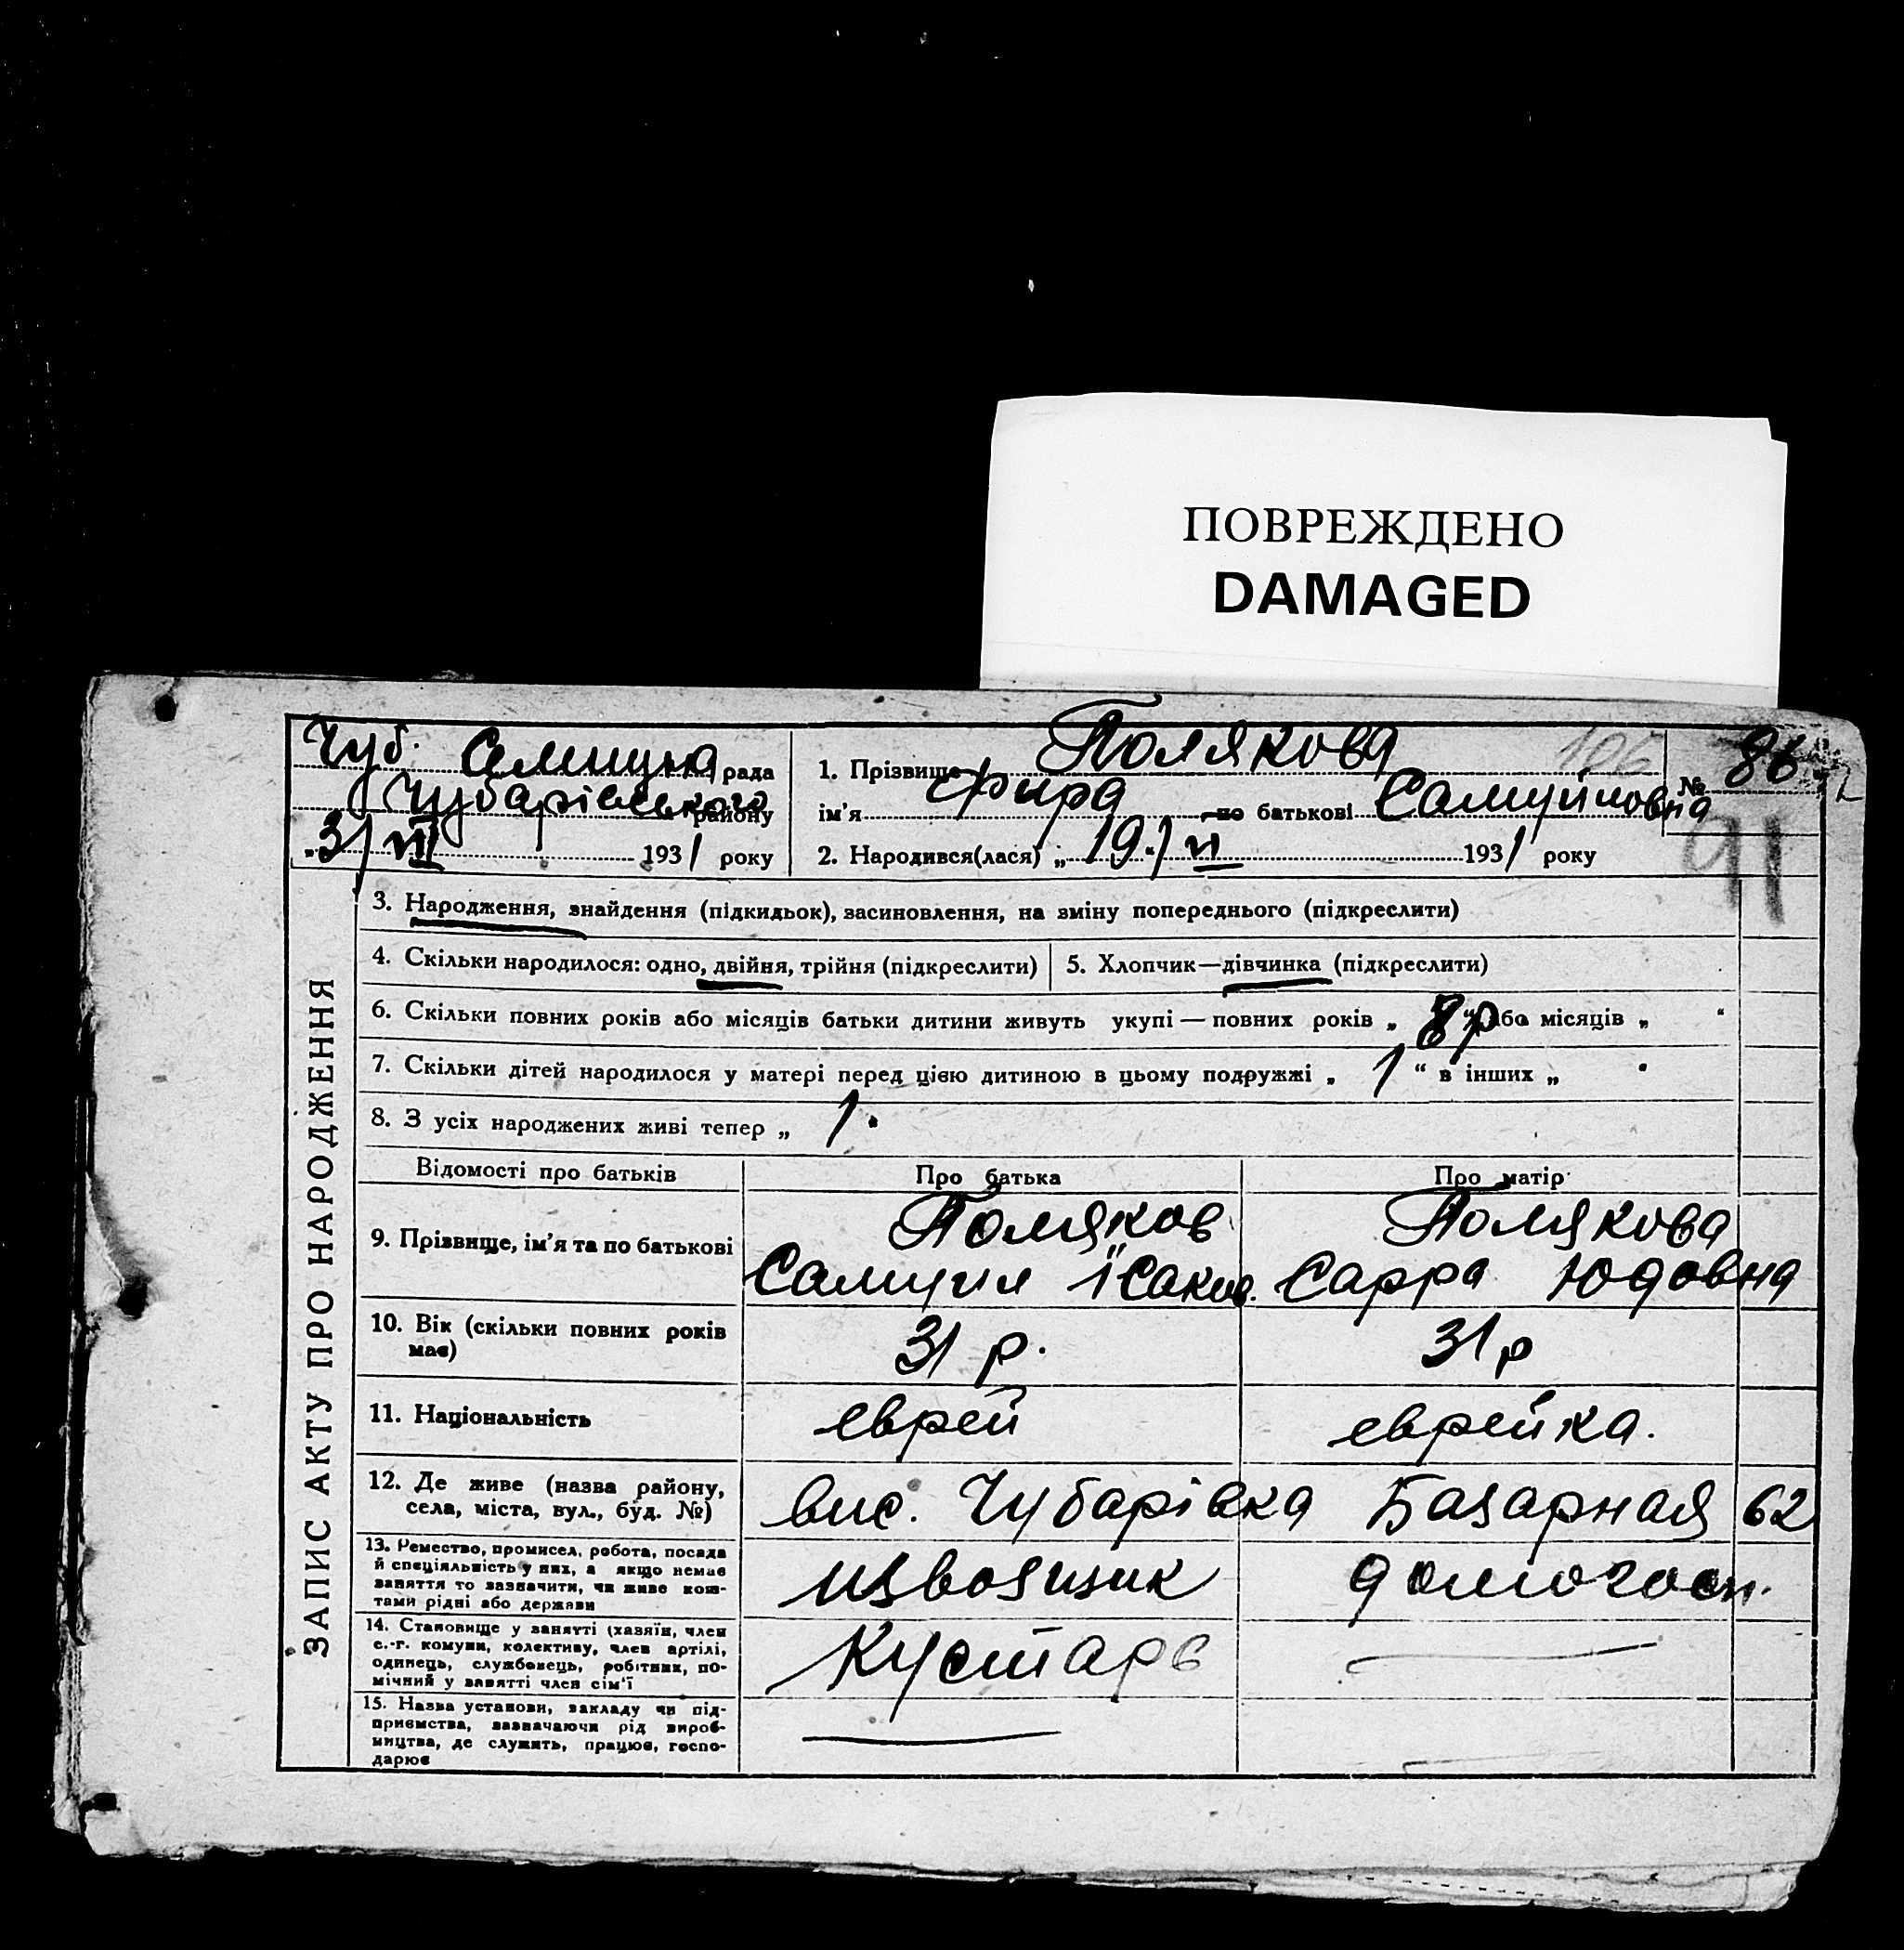 ПОВРЕЖДЕНО
DAMAGED
Чуб. Селищна рада
Чубарівського району
"3/VII 1931 року
1. Прізвище Полякова
ім'я Фира по батькові Самуйловна
2. Народився(лася) „19"/VI 1931 року
106
№ 86
91
ЗАПИС АКТУ ПРО НАРОДЖЕННЯ
3. Народження, знайдення (підкидьок), засиновлення, на зміну попереднього (підкреслити)
4. Скільки народилося: одно, двійня, трійня (підкреслити)
5. Хлопчик—дівчинка (підкреслити)
6. Скільки повних років або місяців батьки дитини живуть укупі — повних років „ 8 р або місяців „ "
7. Скільки дітей народилося у матері перед цією дитиною в цьому подружжі „ 1 " в інших „ "
8. З усіх народжених живі тепер „ 1 "
Відомості про батьків Про батька Про матір
9. Прізвище, ім'я та по батькові
Поляков Полякова
Самуил Ісаков. Сарра Юдовна
10. Вік (скільки повних років має) 31 р. 31 р
11. Національність еврей еврейка.
12. Де живе (назва району, села, міста, вул., буд. №)
вис. Чубарівка Базарная 62
13. Ремество, промисел, робота, посада й спеціяльність у них, а якщо немає заняття то зазначити, чи живе коштами рідні або держави
извозщик домогосп.
14. Становище у занятті (хазяїн, член с.-г. комуни, колективу, член артілі, одинець, службовець, робітник, помічний у занятті член сім'ї
Кустарь
15. Назва установи, закладу чи підприємства, зазначаючи рід виробництва, де служить, працює, господарює